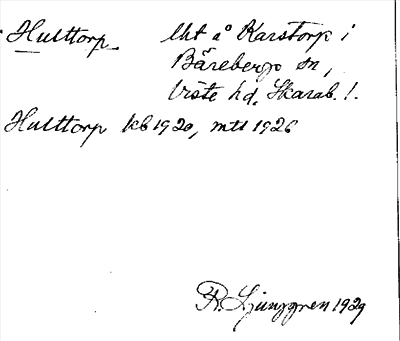 Hulttorp lht å Karstorp i
Bärebergs sn,
Viste hd, Skarab. l.
Hulttorp kb 1920, mtl 1926
R. Ljunggren 1929